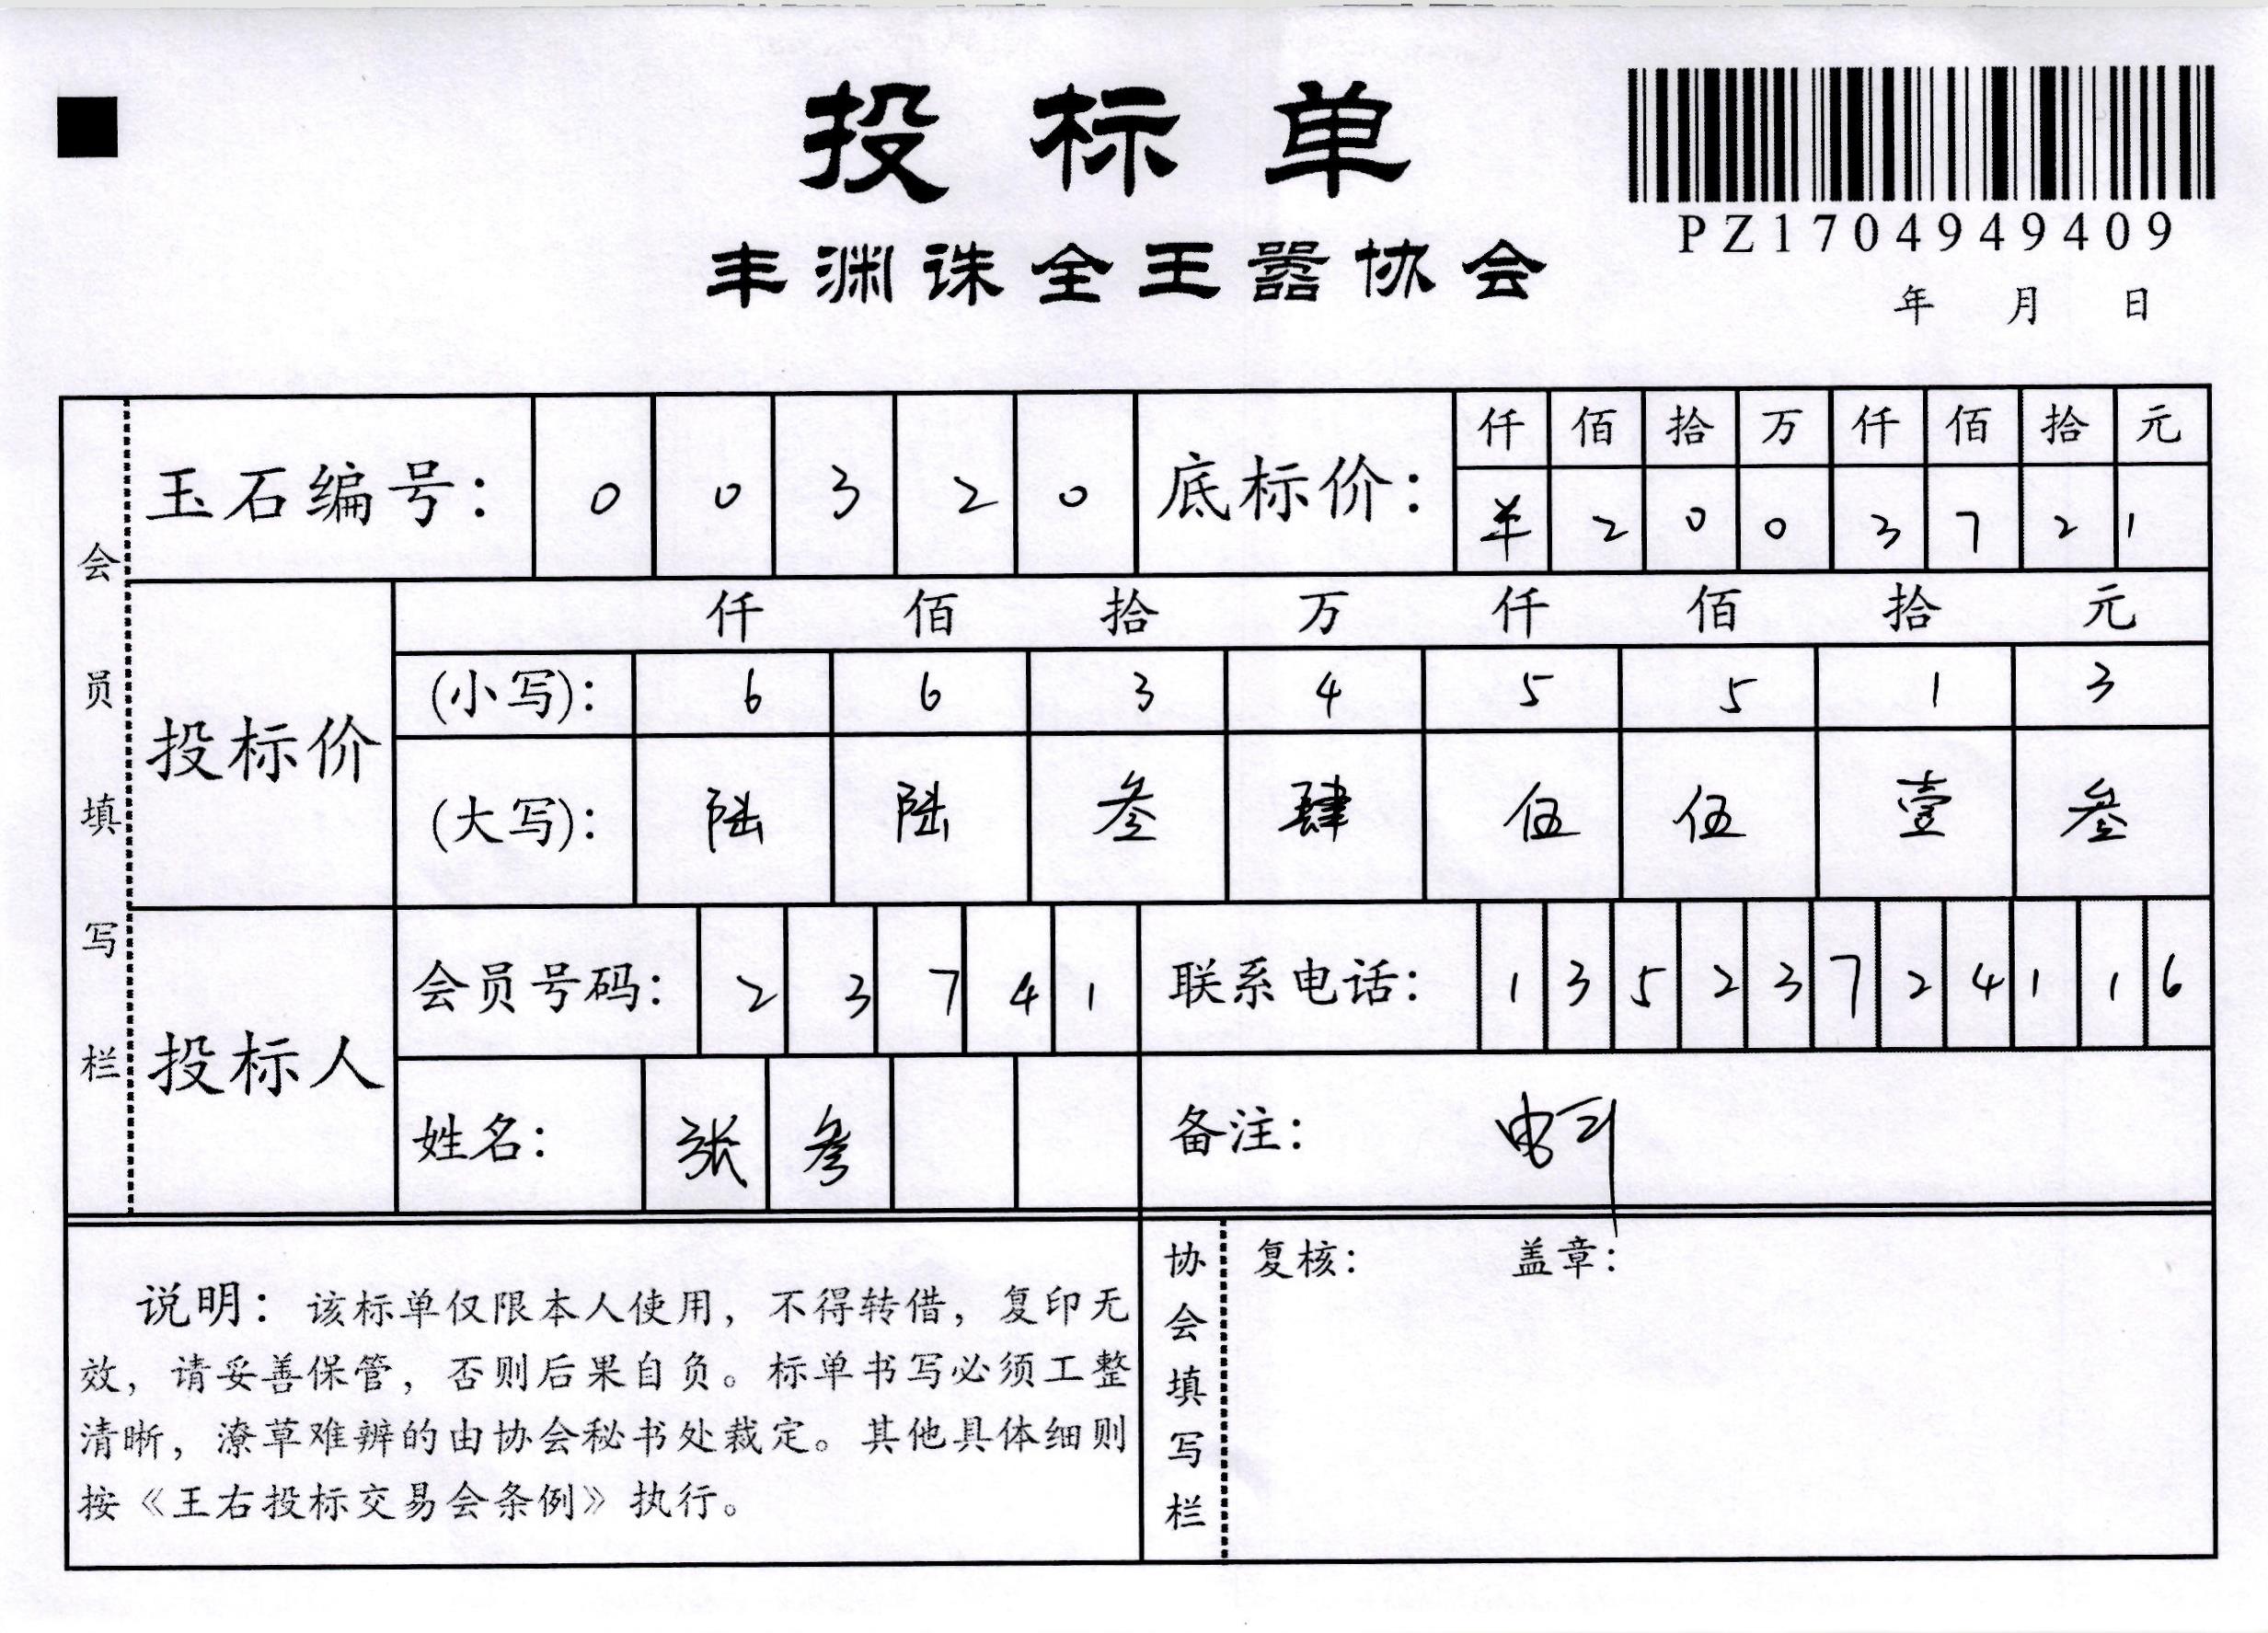 投标单
PZ1704949409
丰渊诛全王嚣协会
年 月 日
会员填写栏
玉石编号: 0 0 3 2 0
底标价: 仟 佰 拾 万 仟 佰 拾 元
¥ 2 0 0 3 7 2 1
投标价
仟 佰 拾 万 仟 佰 拾 元
(小写): 6 6 3 4 5 5 1 3
(大写): 陆 陆 叁 肆 伍 伍 壹 叁
投标人
会员号码: 2 3 7 4 1
联系电话: 1 3 5 2 3 7 2 4 1 1 6
姓名: 张 叁
备注:
说明:该标单仅限本人使用,不得转借,复印无
效,请妥善保管,否则后果自负。标单书写必须工整
清晰,潦草难辨的由协会秘书处裁定。其他具体细则
按《王右投标交易会条例》执行。
协会填写栏
复核: 盖章: